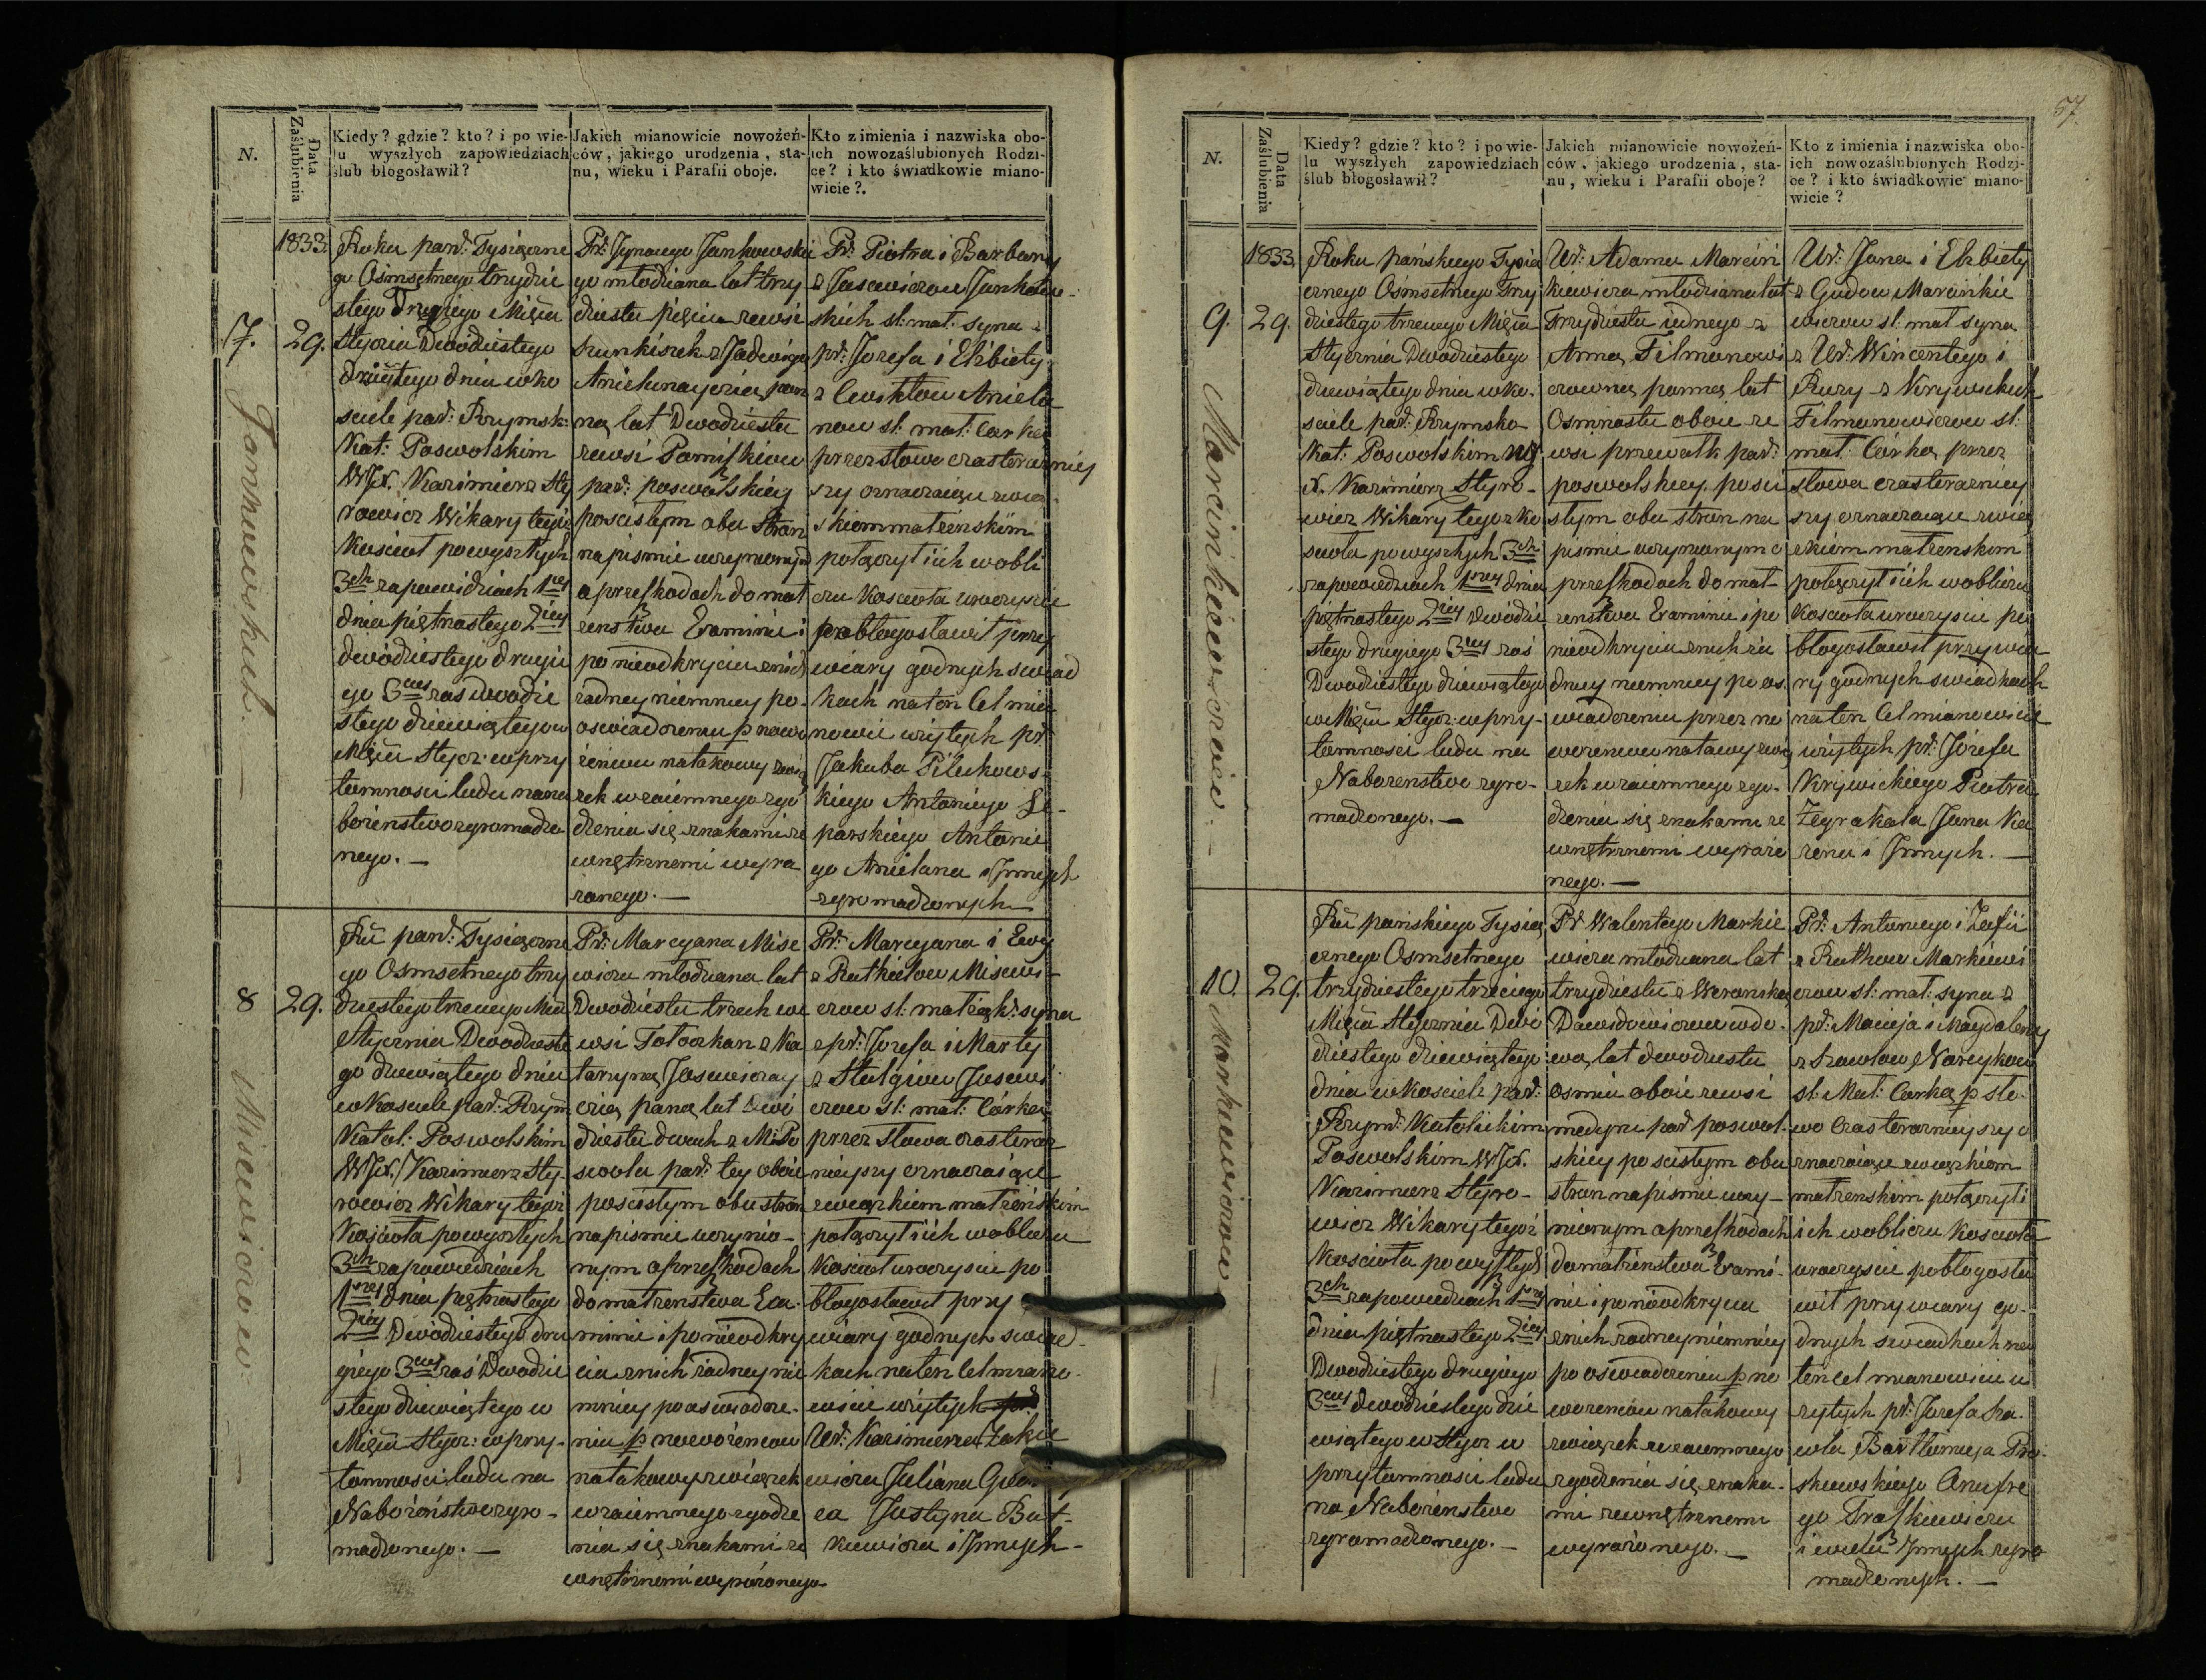 57
N.
Data Zaślubienia
Kiedy? gdzie? kto? i po wie-
lu wyszłych zapowiedziach
ślub błogosławił?
Jakich mianowicie nowożeń-
ców, jakiego urodzenia, sta-
nu, wieku i Parafii oboje.
Kto z imienia i nazwiska obo-
ich nowozaślubionych Rodzi-
ce? i kto świadkowie miano-
wicie?.
1833.
7.
29.
Jankowskich
Roku pań: Tysiączne
go Ośmsetnego trzydzie
stego Drugiego Mięsca
Stycznia Dwodziestego
dziewiątego dnia w ko
sciele par: Rzymsk:
Kat: Poswolskim
WJX. Kazimierz Sty
rowicz Wikary tegoż
Kościoł powyszłych
3ch zapowiedziach 1szey
dnia piętnastego 2giey
dwódziestego drugie
go 3ciey zas dwodzie
stego dziewiątego w
Mięsu Stycz: w przy
tomnosci ludu na na
bożenstwo zgromadzo
nego. —
Pr: Jgnacego Jankowskie
go młodziana lat trzy
dziestu pięciu z ewsi
z Jadwigą
pan
ną lat Dwodziestu
zewsi
par: poswolskiey
poscisłym obu stron
napismie uczynionym
o przeszkodach do mał
zenstwa Examinie i
po nieodkryciu z nich
żadney niemniey po-
oswiadczeniu p nowo
żencow natakowy zwią
zek wzaiemnego zgo
dzenia się znakami ze
wnętrznemi wyra
żonego. —
Pr: Piotra i Barbary
z Jasiewiczow Jankow-
skich sl: mał: syna z
pr: Jozefa i Elżbiety
now sl: mał: Carką
przez słowo czasteraźniey
szy oznaczaiące zwią
skiem małżeńskim
połączył iich wobli
czu Kosciola uroczyscie
pobłogosławił przy
wiary godnych swiad
kach na ten Cel mia
nowicie wziętych pr
Jakuba Pilukows
kiego Antoniego
parskiego Antonie
go Anielana i Jnnych
zgromadzonych
8
29.
Misiewiczow
Ru pań: Tysiączne
go Osmsetnego trzy
dziestego trzeciego Mies
Stycznia Dwodzieste
go dziewiątego dnia
w Kosciele par: Rzym
Katol: Poswolskim
WJX. Kazimierz Sty-
rowicz Wikary tegoż
Kosciola powyszłych
3ch zapowiedziach
1szey dnia piętnastego
2giey Dwódziestego dru
giego 3ciey zas Dwodzie
stego dziewiątego w
Mięsu Stycz: w przy-
tomnosci ludu na
Nabożeństwo zgro-
madzonego. —
Pr: Marcyana Mise
wicza młodziana lat
Dwodziestu trzech ze
wsi z Ka
tarzyną
panną lat dwó
dziestu dwoch z M: Po
swola par: tey oboie
poscisłym obu stron
napismie uczynio-
nym o przeszkodach
do małżenstwa Exa-
minie i po nieodkry
ciu z nich żadney nie
mniey po oswiadcze-
niu p nowożencow
natakowy związek
wzaiemnego zgodze
nia się znakami ze
wnętrznemi wyrażonego
Pr: Marcyana i Ewy
z Misiewi-
czow sl: małżąk: syna
z pr: Jozefa i Marty
czow sl: mał: Córką
przez Słowa czasteraz
nieyszy oznaczaiące
związkiem małżeńskim
połączył iich wobliczu
Kosciol uroczyscie po
błogosławił przy
wiary godnych swiad-
kach naten Cel miano-
wicie wziętych
Ur: Kazimierza
wicza Juliana
Justyna But-
kiewicza i Jnnych-
N.
Data Zaślubienia
Kiedy? gdzie? kto? i po wie-
lu wyszłych zapowiedziach
ślub błogosławił?
Jakich mianowicie nowożeń-
ców, jakiego urodzenia, sta-
nu, wieku i Parafii oboje?
Kto z imienia i nazwiska obo-
ich nowozaślubionych Rodzi-
ce? i kto świadkowie miano-
wicie?
1833
9.
29.
Marcinkiewiczow
Roku pańskiego Tysią
cznego Osmsetnego Trzy
dziestego trzeciego Mięsca
Stycznia Dwodziestego
dziewiątego dnia w ko-
sciele par: Rzymsko
Kat: Poswolskim WJ
X. Kazimierz Styro-
wicz Wikary tegoz ko
sciola powyszłych 3ch
zapowiedziach 1szey dnia
piętnastego 2giey Dwódzie
stego drugiego 3ciey zaś
Dwodziestego dziewiątego
w Mięsu Stycz: w przy-
tomnosci ludu na
Nabożenstwo zgro-
madzonego. —
Ur: Adama Marcin
kiewicza młodziana lat
Trzydziestu iednego z
Anną Filmanowi
czowną panną lat
Osmnastu oboie ze
wsi par:
poswolskiey. posci
słym obu stron na
pismie uczynionym o
przeszkodach do mał-
zenstwa Examinie i po
nieodkryciu znich ża
dney niemniey po os
wiadczeniu przez no
wożencow natakowy zwią
zek wzaiemnego zgo-
dzenia się znakami ze
wnętrznemi wyrażo
nego. —
Ur: Jana i Elzbiety
z Gudow Marcinkie
wiczow sl: mał syna
z Ur: Wincentego i
Filmanowiczow sl:
mał: Córką przez
słowa czasteraźniey
szy oznaczaiące zwią
zkiem małzenskim
połączył iich wobliczu
Kosciola uroczyscie po
błogosławił przy wia
ry godnych swiadkach
na ten Cel mianowicie
wziętych pr: Józefa
Krzywickiego Piotra
Jana Ka
zenu i Jnnych. —
10.
29.
Markiewiczow
Ru pańskiego Tysią
cznego Osmsetnego
trzydziestego trzeciego
Mięsca Stycznia Dwó
dziestego dziewiątego
dnia w Kosciele par:
Rzym: Katolickim
Poswolskim WJX.
Kazimierz Styro-
wicz Wikary tegoż
Kosciola powyszłych
3ch zapowiedziach 1szey
dnia piętnastego 2giey
Dwodziestego drugiego
3ciey dwodziestego dzie
wiątego w Stycz w
przytomnosci ludu
na Nabożenstwo
zgromadzonego. —
Pr Walentego Markie
wicza młodziana lat
trzydziestu z Weroniką
Dawidowiczową wdo-
wą, lat dwodziestu
osmiu oboie zewsi
par poswol-
skiey po scisłym obu
stron napismie uczy-
nionym o przeszkodach
do małżenstwa Exami-
nie i po nieodkryciu
znich żadney niemniey
po oswiadczeniu p no
wożencow natakowy
związek wzaiemnego
zgodzenia się znaka-
mi zewnętrznemi
wyrażonego. —
Pr: Antoniego i Zofii
z Rutkow Markiewi
czow sl: mał: syna z
pr: Macieja i Magdaleny
z Szawłow Narcykow
sl: Mał: Carką p sło-
wo Czasteraźnieyszy o
znaczaiące związkiem
małżenskim połączył i
ich wobliczu Kosciola
uroczyscie pobłogosła
wił przy wiary go-
dnych swiadkach na
ten cel mianowicie u
zytych pr: Jozefa Sza-
wła Bartłomieja Pro-
skiewskiego Onufre
go Traszkiewicza
i wielu Jnnych zgro
madzonych. —